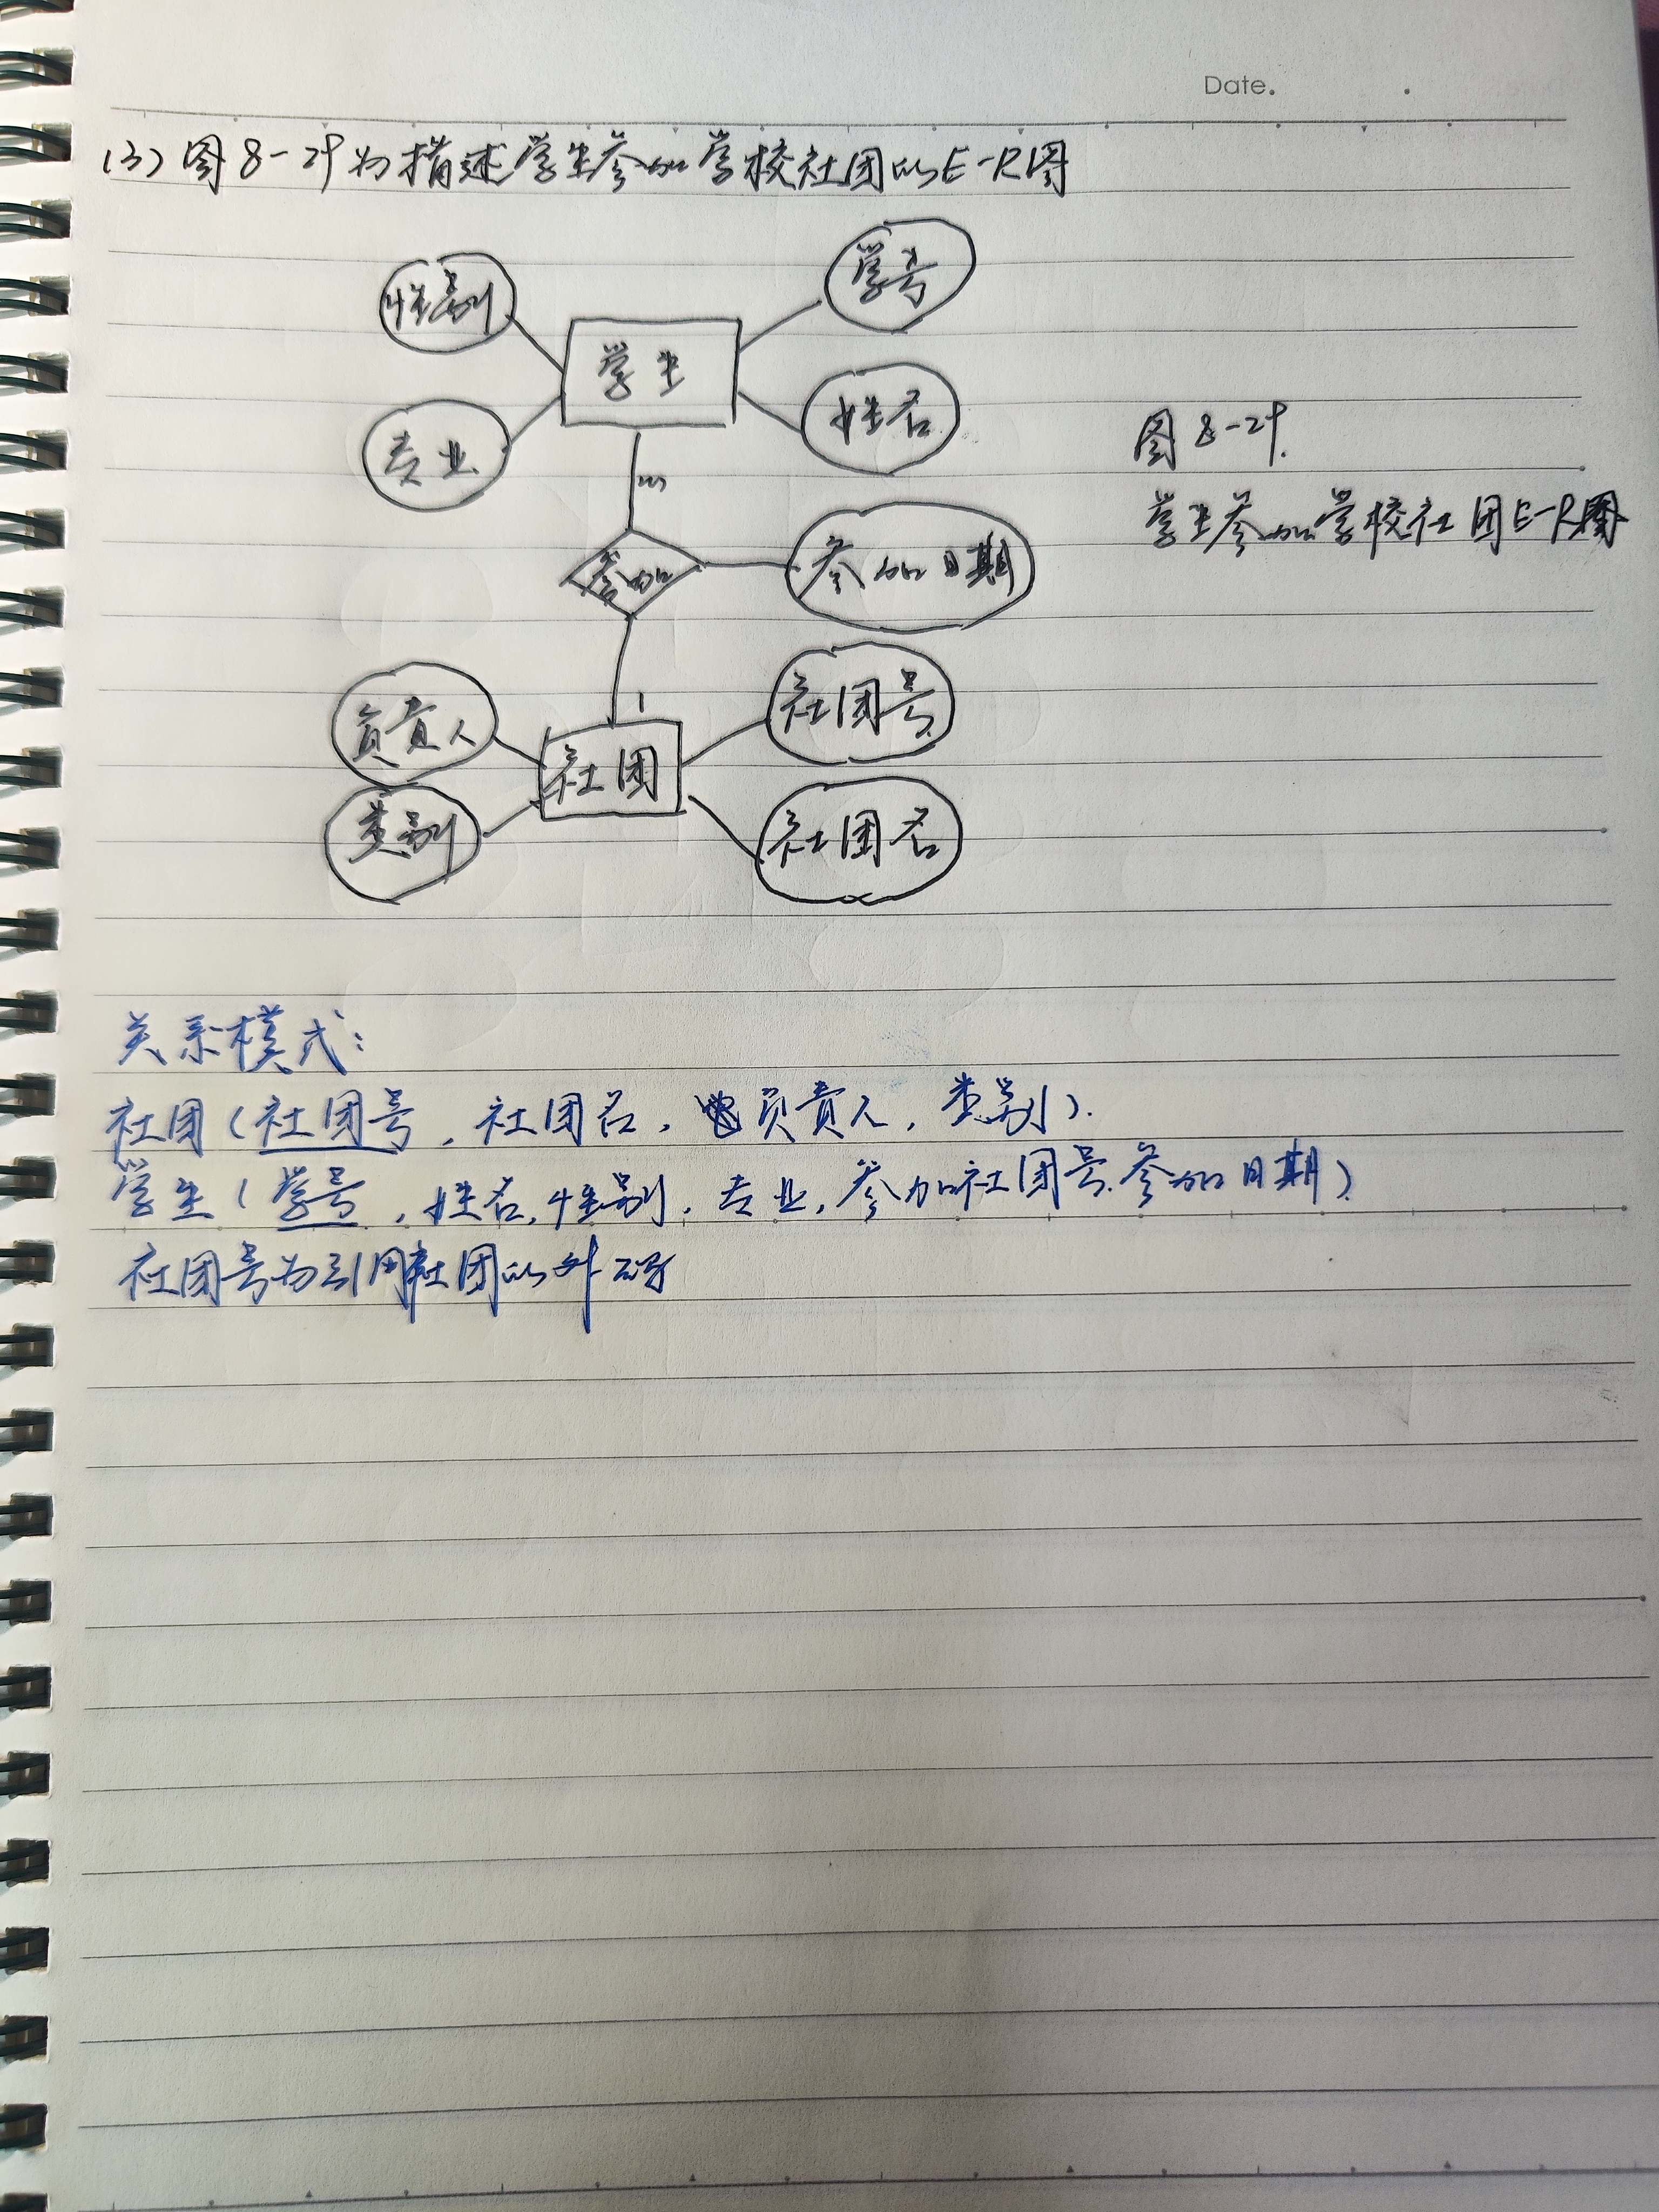 Date.
(3) 图8-29为描述学生参加学校社团的E-R图
性别
学号
学生
专业
姓名
图8-29.
m
学生参加学校社团E-R图
参加
参加日期
负责人
社团号
1
社团
类别
社团名
关系模式:
社团(社团号,社团名,负责人,类别).
学生(学号,姓名,性别,专业,参加社团号.参加日期)
社团号为引用社团的外码